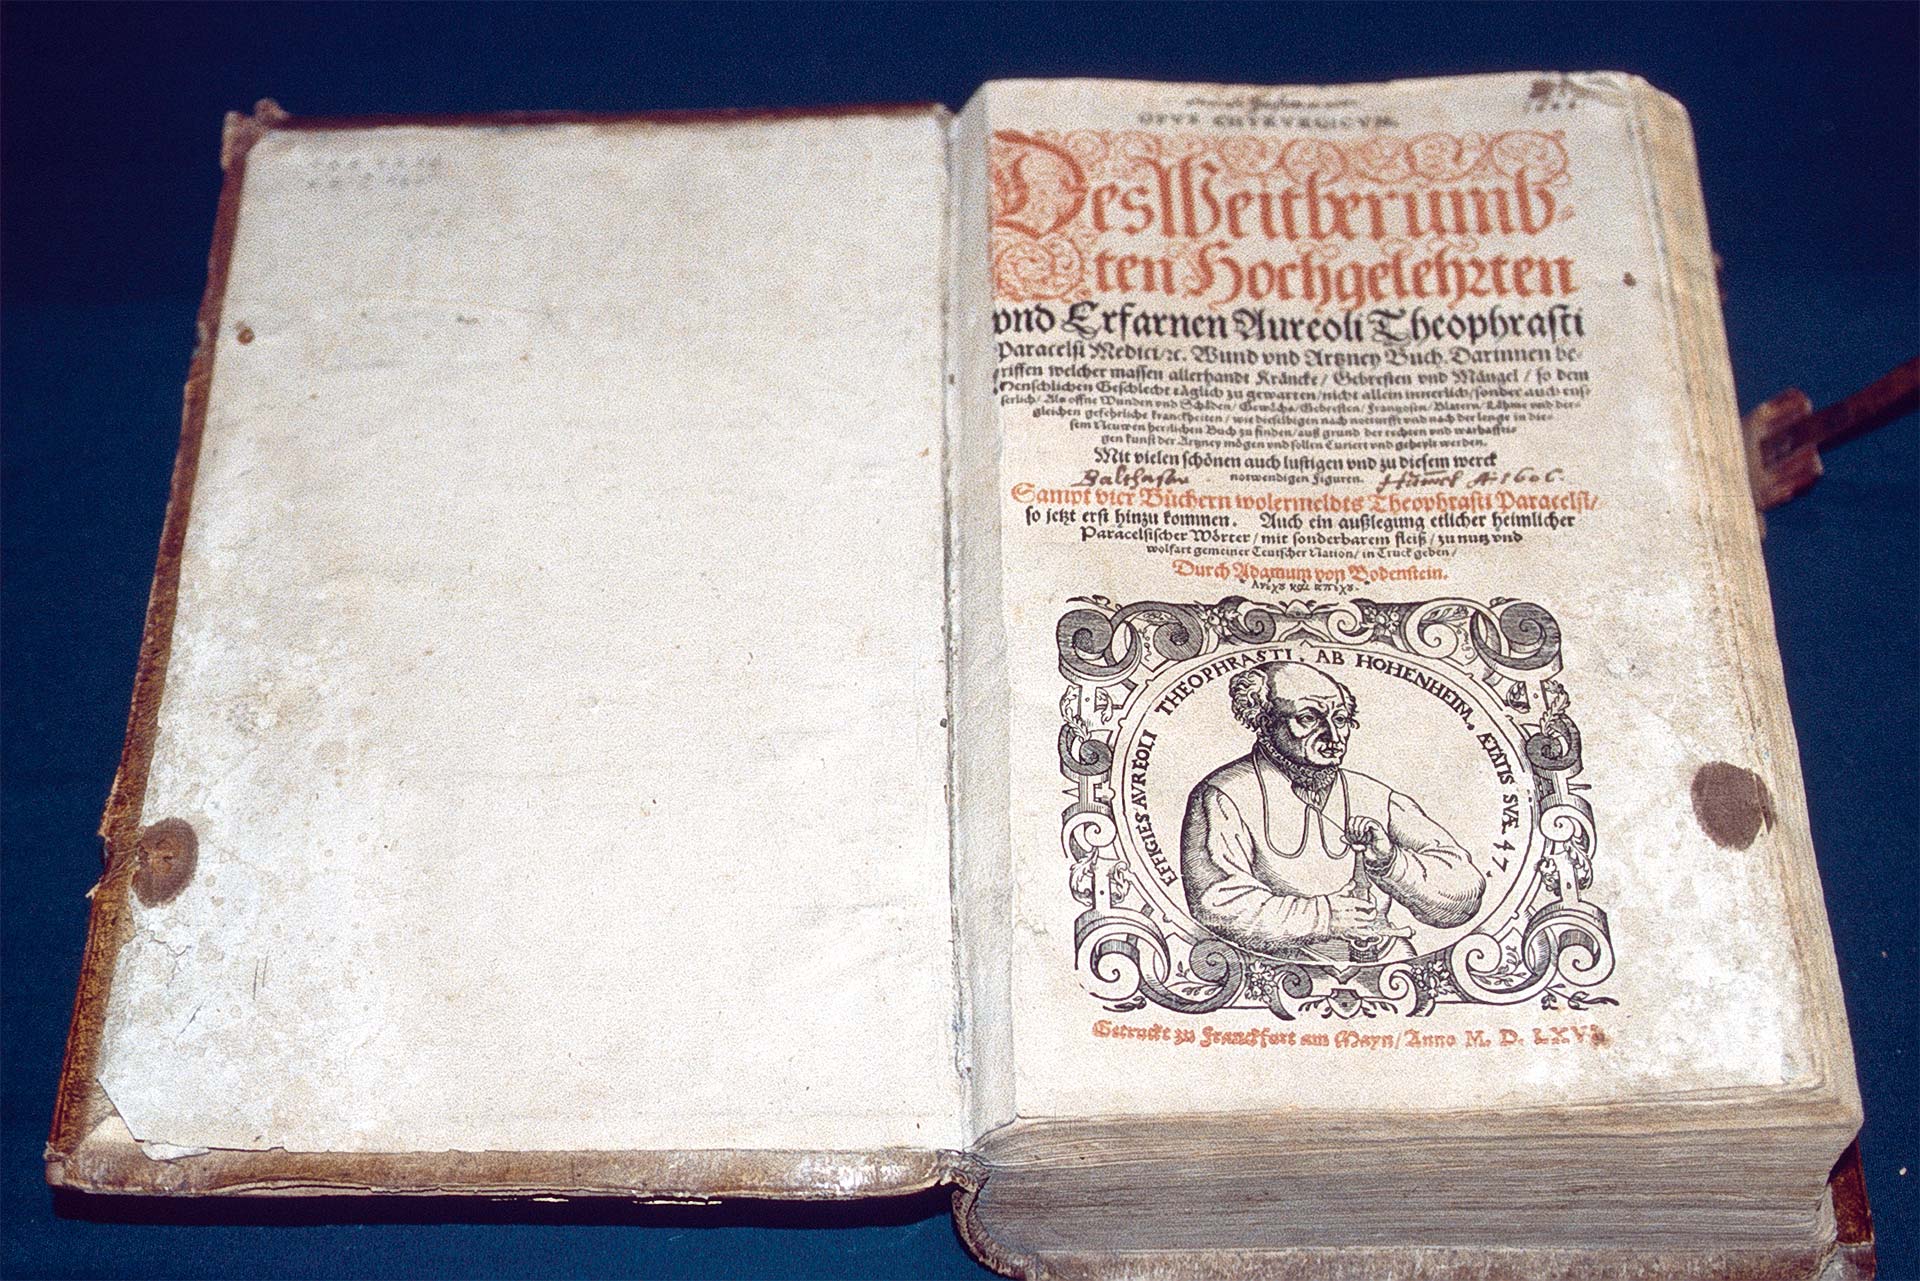 OPVS CHYRVRGICVM.
Des Weitberumb-
ten Hochgelehrten
vnd Erfarnen Aureoli Theophrasti
Paracelsi Medici/ꝛc. Wund vnd Artzney Buch. Darinnen be-
griffen welcher massen allerhandt Kräncke/ Gebresten vnd Mängel/ so dem
Menschlichen Geschlecht täglich zu gewarten/ nicht allein innerlich/ sonder auch eus-
serlich/ Als offne Wunden vnd Schäden/ Gewächs/ Gebresten/ Frantzosen/ Blatern/ Lähme vnd der-
gleichen gefehrliche kranckheiten/ wie dieselbigen nach notturfft vnd nach der lenge in die-
sem Neuwen herrlichen Buch zu finden/ auß grund der rechten vnd warhaffti-
gen kunst der Artzney mögen vnd sollen Curiert vnd geheylt werden.
Mit vielen schönen auch lustigen vnd zu diesem werck
notwendigen Figuren.
Balthasar Hümel A. 1606.
Sampt vier Büchern wolermeldts Theophrasti Paracelsi/
so jetzt erst hinzu kommen. Auch ein außlegung etlicher heimlicher
Paracelsischer Wörter/ mit sonderbarem fleiß/ zu nutz vnd
wolfart gemeiner Teutscher Nation/ in Truck geben/
Durch Adamum von Bodenstein.
EFFIGIES AVREOLI THEOPHRASTI, AB HOHENHEIM. ÆTATIS SVÆ 47.
Getruckt zu Franckfurt am Mayn/ Anno M. D. LXVI.